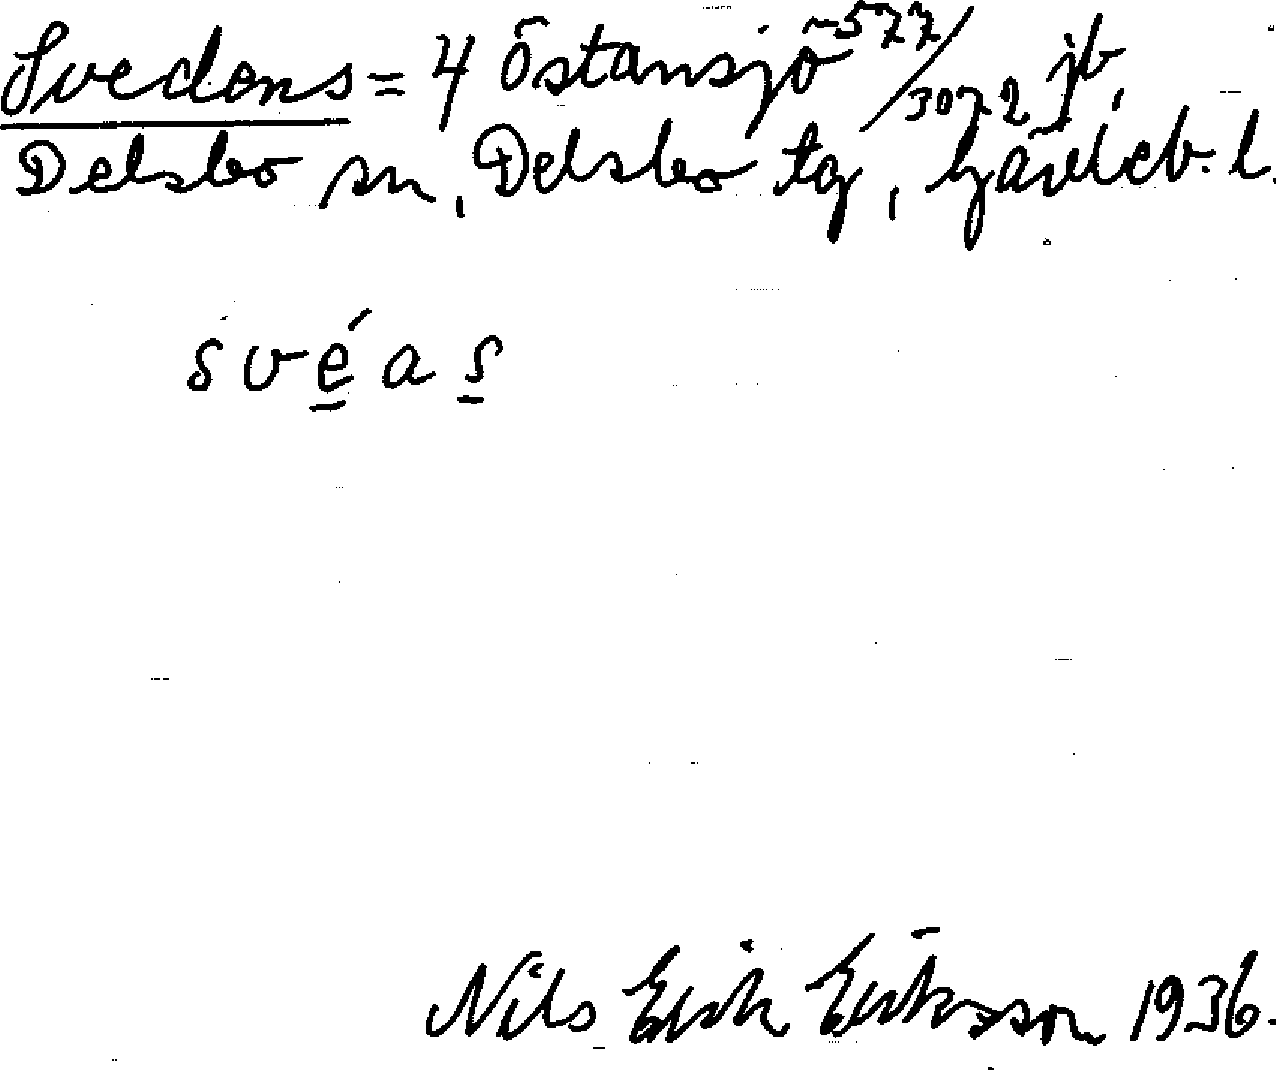 Svedens = 4 Östansjö 577/3072 jb,
Delsbo sn, Delsbo tg, Gävleb. l.
svéas
Nils Erik Eriksson 1936.